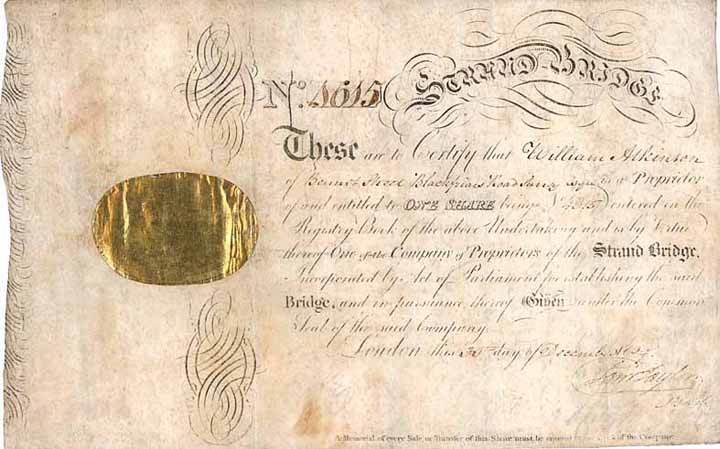 No. 4615 STRAND BRIDGE
These are to Certify that William Atkinson
of Bennet Street Blackfriars Road Surry is a Proprietor
of and entitled to ONE SHARE being No. 4615 entered in the
Registry Book of the above Undertaking and is by Virtue
thereof One of the Company of Proprietors of the Strand Bridge,
Incorporated by Act of Parliament for establishing the said
Bridge, and in pursuance thereof Given under the Common
Seal of the said Company.
London this day of December
A Memorial of every Sale or Transfer of this Share must be of the Company